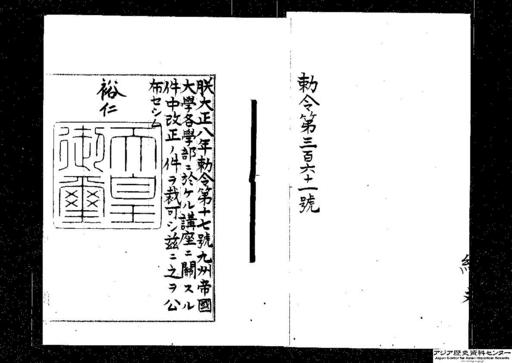 勅令第三百六十一號
朕大正八年勅令第十七號九州帝國
大學各學部ニ於ケル講座ニ關スル
件中改正ノ件ヲ裁可シ茲ニ之ヲ公
布セシム
裕仁
天皇
御璽
アジア歴史資料センター
Japan Center for Asian Historical Records